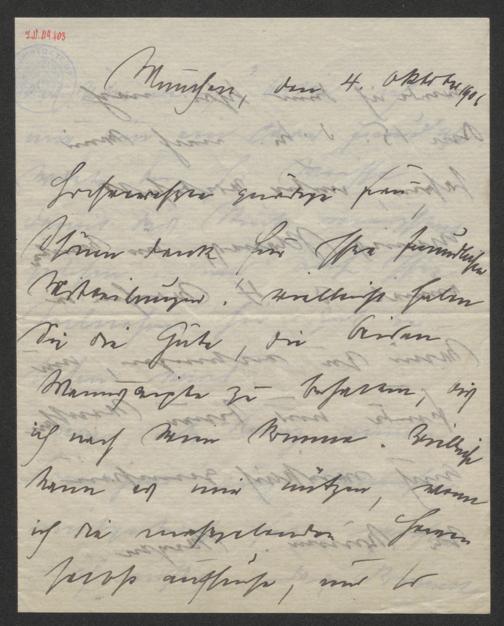 München, den 4. Oktober 1906
Hochverehrte gnädige Frau,
Schönen Dank für Ihre freundlichen
Mitteilungen. Vielleicht haben
Sie die Güte, die beiden
Manuscripte zu behalten, bis
ich nach Wien komme. Vielleicht
kann es mir nützen, wenn
ich die massgebenden Herren
selbst aufsuche, und